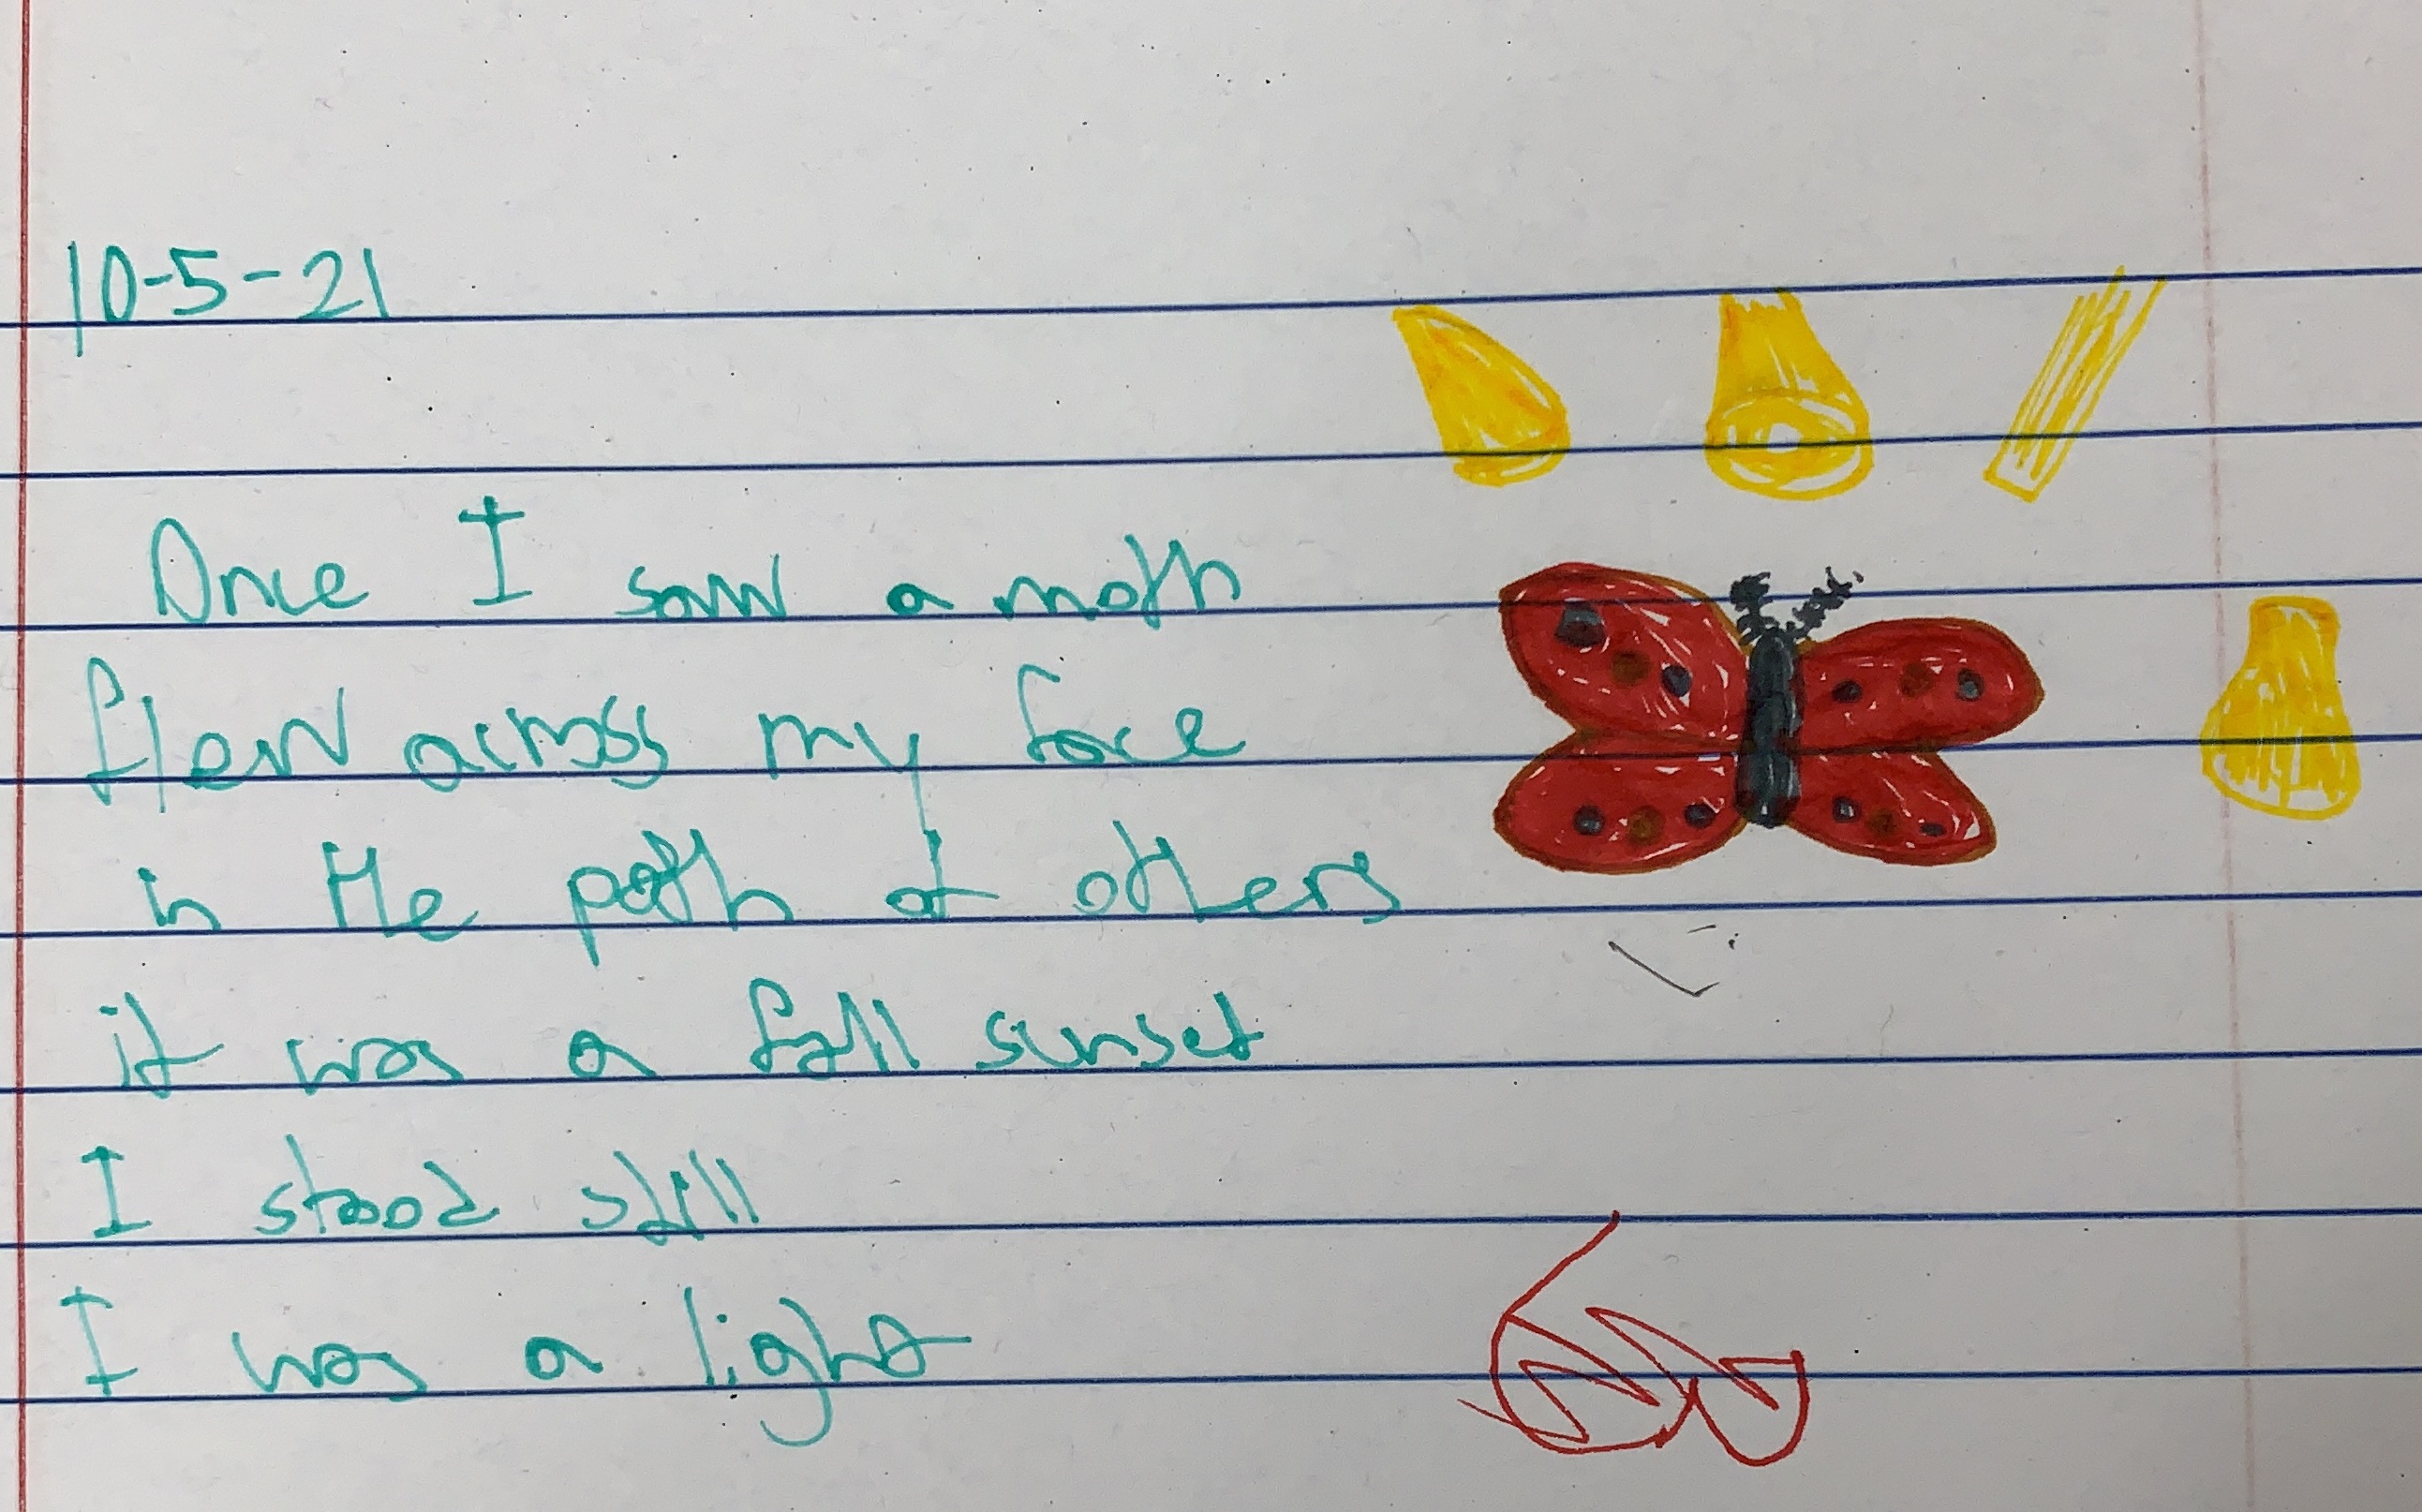 10-5-21
Once I saw a moth
flew across my face
in the path of others
it was a fall sunset
I stood still
I was a light